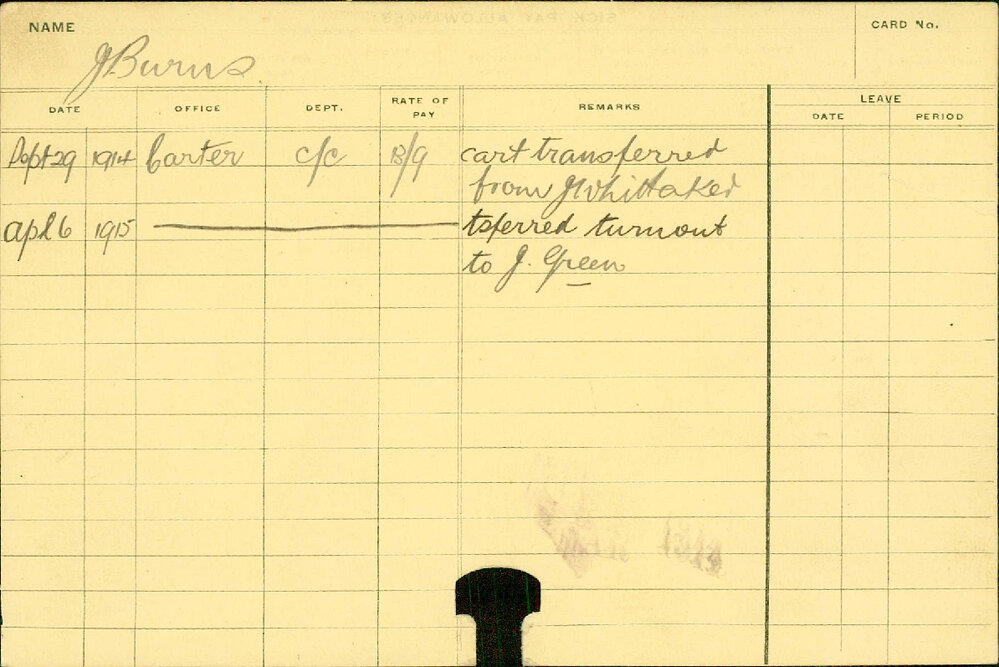 NAME
CARD No.
J Burns
DATE OFFICE DEPT. RATE OF PAY REMARKS LEAVE
DATE PERIOD
Sept 29 1914 Carter c/c 13/9 cart transferred
from J Whittaker
Apl 6 1915 tsferred turnout
to J. Green